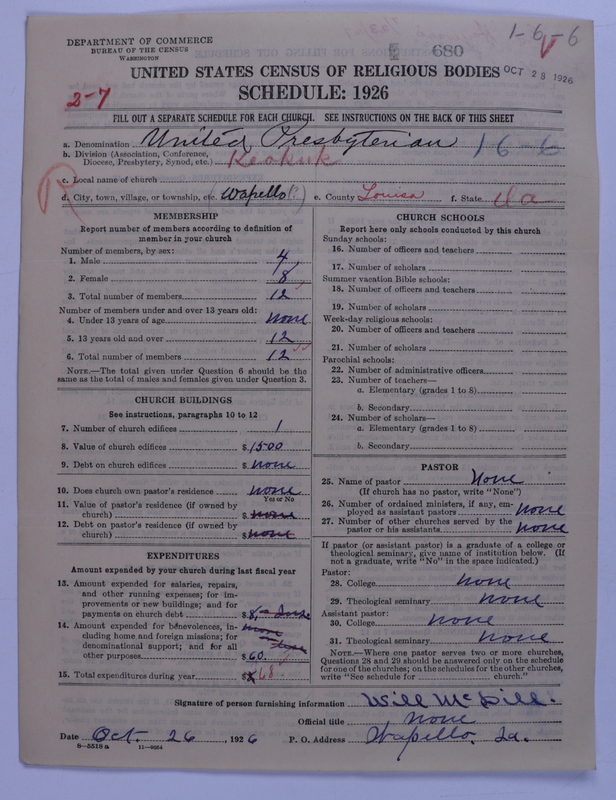 1-6-6
DEPARTMENT OF COMMERCE
BUREAU OF THE CENSUS
WASHINGTON
680
UNITED STATES CENSUS OF RELIGIOUS BODIES
OCT 28 1926
2-7
SCHEDULE: 1926
FILL OUT A SEPARATE SCHEDULE FOR EACH CHURCH. SEE INSTRUCTIONS ON THE BACK OF THIS SHEET
a. Denomination United Presbyterian 16-6
b. Division (Association, Conference,
Diocese, Presbytery, Synod, etc.) Keokuk
c. Local name of church
d. City, town, village, or township, etc. (Wapello?) e. County Louisa f. State Ia
MEMBERSHIP
Report number of members according to definition of
member in your church
Number of members, by sex:
1. Male 4
2. Female 8
3. Total number of members 12
Number of members under and over 13 years old:
4. Under 13 years of age none
5. 13 years old and over 12
6. Total number of members 12
NOTE.—The total given under Question 6 should be the
same as the total of males and females given under Question 3.
CHURCH BUILDINGS
See instructions, paragraphs 10 to 12
7. Number of church edifices 1
8. Value of church edifices $1500
9. Debt on church edifices $none
10. Does church own pastor's residence none
Yes or No
11. Value of pastor's residence (if owned by
church) $none
12. Debt on pastor's residence (if owned by
church) $none
EXPENDITURES
Amount expended by your church during last fiscal year
13. Amount expended for salaries, repairs,
and other running expenses; for im-
provements or new buildings; and for
payments on church debt $8,
14. Amount expended for benevolences, in-
cluding home and foreign missions; for
denominational support; and for all
other purposes $60.
15. Total expenditures during year $68.
CHURCH SCHOOLS
Report here only schools conducted by this church
Sunday schools:
16. Number of officers and teachers
17. Number of scholars
Summer vacation Bible schools:
18. Number of officers and teachers
19. Number of scholars
Week-day religious schools:
20. Number of officers and teachers
21. Number of scholars
Parochial schools:
22. Number of administrative officers
23. Number of teachers—
a. Elementary (grades 1 to 8)
b. Secondary
24. Number of scholars—
a. Elementary (grades 1 to 8)
b. Secondary
PASTOR
25. Name of pastor None
(If church has no pastor, write "None")
26. Number of ordained ministers, if any, em-
ployed as assistant pastors none
27. Number of other churches served by the
pastor or his assistants none
If pastor (or assistant pastor) is a graduate of a college or
theological seminary, give name of institution below. (If
not a graduate, write "No" in the space indicated.)
Pastor:
28. College none
29. Theological seminary none
Assistant pastor:
30. College none
31. Theological seminary none
NOTE.—Where one pastor serves two or more churches,
Questions 28 and 29 should be answered only on the schedule
for one of the churches; on the schedules for the other churches,
write "See schedule for church."
Signature of person furnishing information Will McDill.
Official title none
Date Oct. 26, 1926 P. O. Address Wapello, Ia.
8-5518 a 11-9054